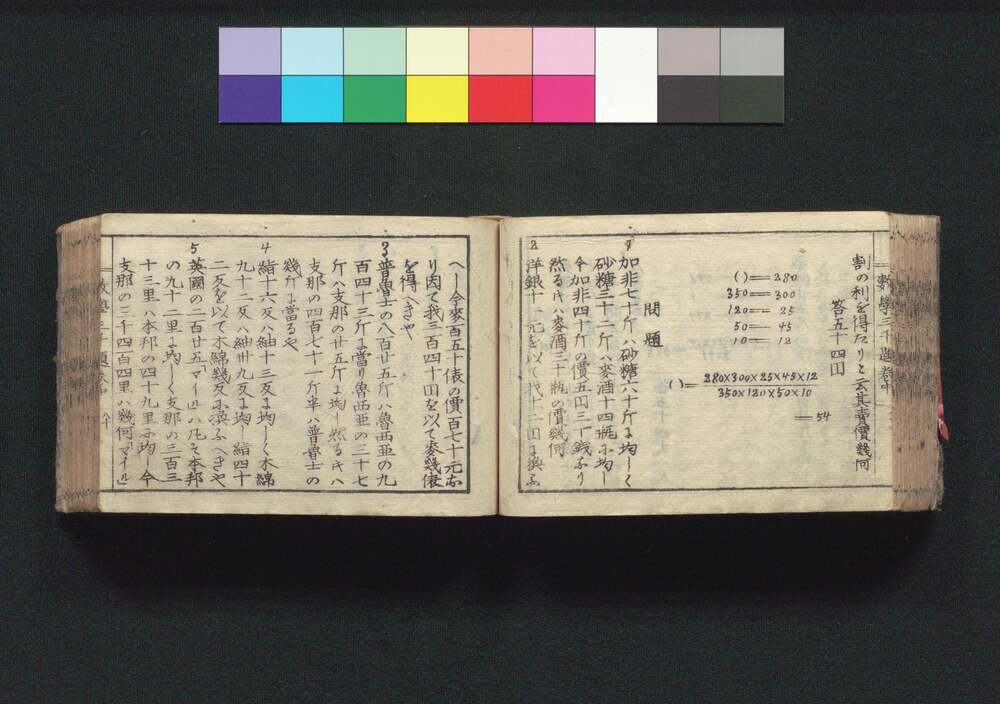 割の利を得たりと云其賣價幾何
答五十四圓
( )＝280
350＝300
120＝25
50＝45
10＝12
( )＝280×300×25×45×12
350×120×50×10
＝54
問題
1 加非七十斤ハ砂糖六十斤に均しく
砂糖三十二斤ハ麥酒十四瓶に均し
今加非四十斤の價五圓三十錢なり
然る时ハ麥酒三十瓶の價幾何
2 洋銀十一元を以て我十二圓に換ふ
へし今麥百五十俵の價百七十元な
り因て我三百四十圓を以て麥幾俵
を得へきや
3 普魯士の八百廿五斤ハ魯西亜の九
百四十三斤に當り魯西亜の三十七
斤ハ支那の廿五斤に均し然る时ハ
支那の四百七十一斤半ハ普魯士の
幾斤に當るや
4 絹十六反ハ紬十三反に均しく木綿
九十二反ハ紬卅九反に均し絹四十
二反を以て木綿幾反に換ふへきや
5 英國の二百廿五「マイル」ハ凡そ本邦
の九十二里に均しく支那の三百三
十三里ハ本邦の四十九里に均し今
支那の二千四百四里ハ幾何「マイル」
數學三千題